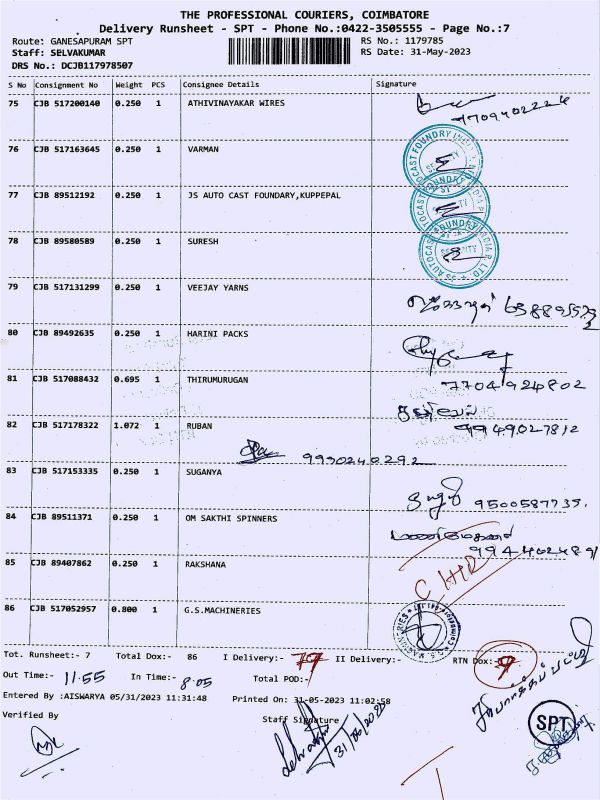 THE PROFESSIONAL COURIERS, COIMBATORE
Delivery Runsheet - SPT - Phone No.:0422-3505555 - Page No.:7
Route: GANESAPURAM SPT RS No.: 1179785
Staff: SELVAKUMAR RS Date: 31-May-2023
DRS No.: DCJB117978507
S No Consignment No Weight PCS Consignee Details Signature
75 CJB 517200140 0.250 1 ATHIVINAYAKAR WIRES
7709402226
76 CJB 517163645 0.250 1 VARMAN
77 CJB 89512192 0.250 1 JS AUTO CAST FOUNDARY,KUPPEPAL
78 CJB 89580589 0.250 1 SURESH
79 CJB 517131299 0.250 1 VEEJAY YARNS
80 CJB 89492635 0.250 1 HARINI PACKS
81 CJB 517088432 0.695 1 THIRUMURUGAN
7704924802
82 CJB 517178322 1.072 1 RUBAN
9949027812
9950240292
83 CJB 517153335 0.250 1 SUGANYA
9500587735.
84 CJB 89511371 0.250 1 OM SAKTHI SPINNERS
85 CJB 89407862 0.250 1 RAKSHANA
86 CJB 517052957 0.800 1 G.S.MACHINERIES
Tot. Runsheet:- 7 Total Dox:- 86 I Delivery:- 77 II Delivery:- RTN Dox:- 9
Out Time:- 11.55 In Time:- 8.05 Total POD:-
Entered By :AISWARYA 05/31/2023 11:31:48 Printed On: 31-05-2023 11:02:58
Verified By Staff Signature
SPT